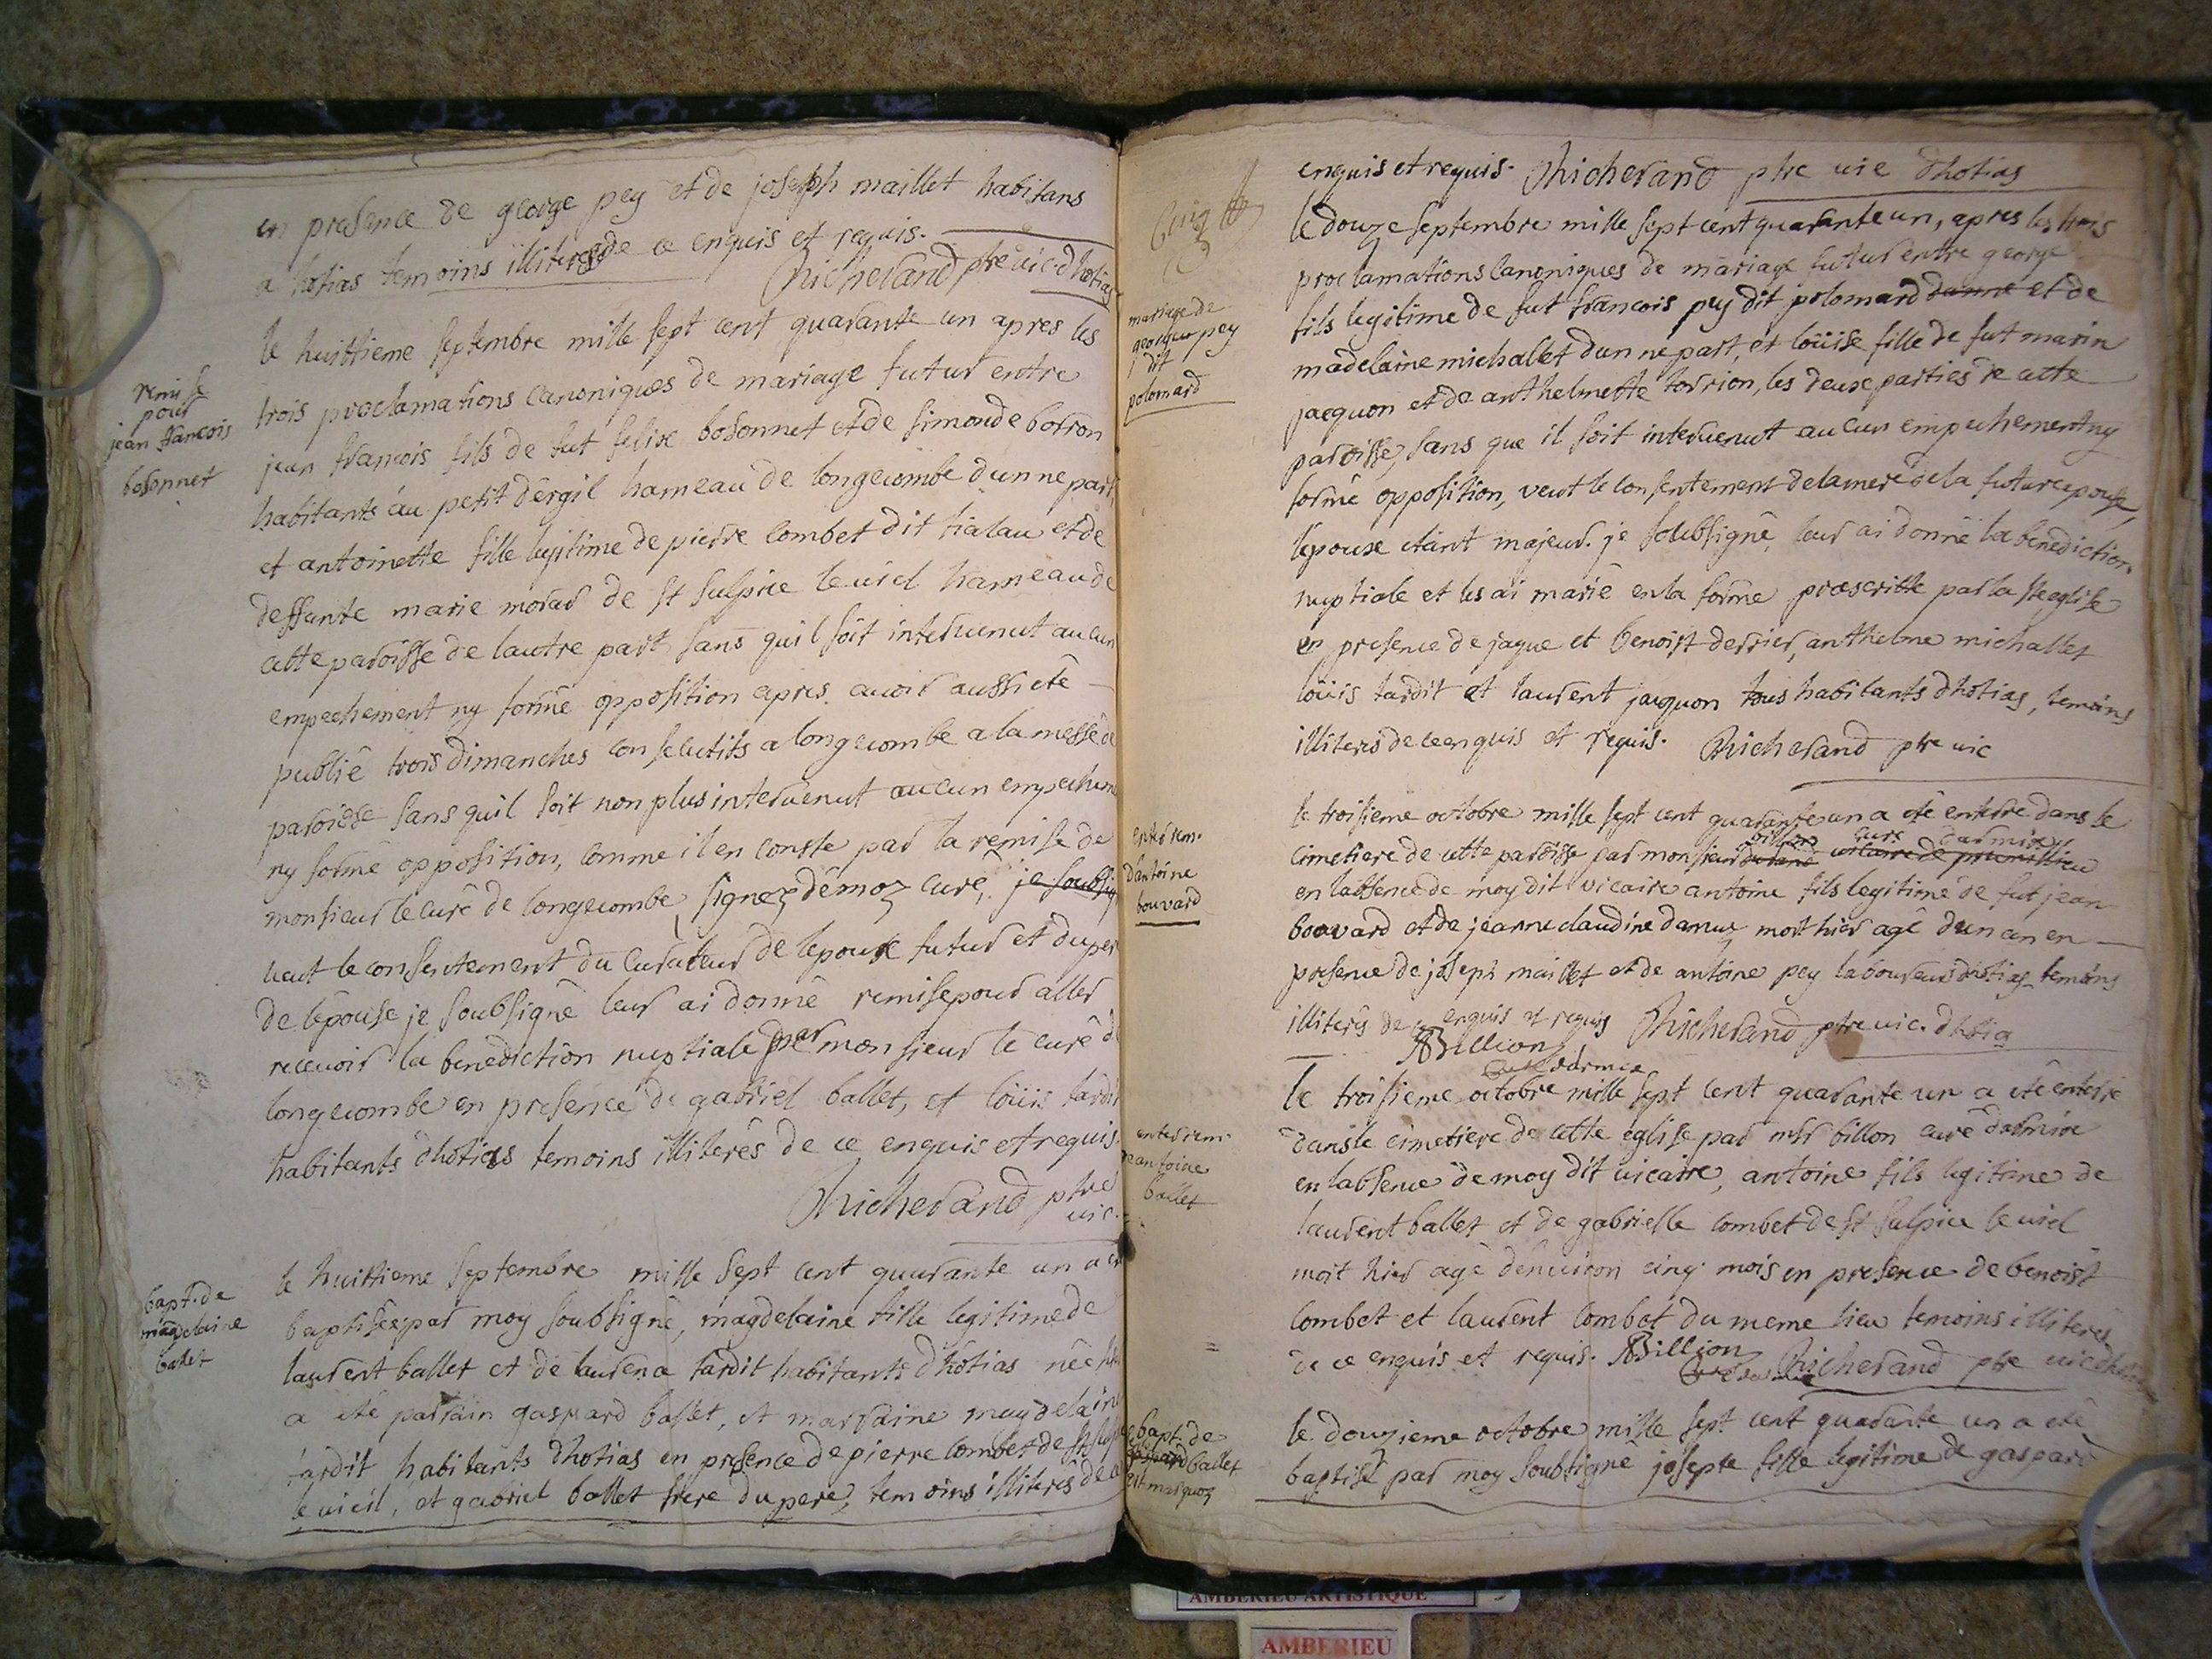 en presence de george pey et de joseph maillet habitans
a hotias temoins illiterés de ce enquis et requis.
Richerand ptre vic. dhotias
remise
pour
jean francois
bosonnet
le huittieme septembre mille sept cent quarante un apres les
trois proclamations canoniques de mariage futur entre
jean francois fils de fut felix bosonnet et de simonde borron
habitants au petit dergil hameau de longecombe dunne part,
et antoinette fille legitime de pierre combet dit tialau et de
deffunte marie morar de st sulpice le viel hameau de
cette paroisse de lautre part sans quil soit intervenut aucun
empechement ny formé opposition apres avoir aussi eté
publié trois dimanches consecutifs a longecombe a la messe de
paroisse sans quil soit non plus intervenut aucun empechem
ny formé opposition, comme il en conste par la remise de
monsieur le curé de longecombe signez démoz curé, je soubsig
veut le consentement du curateur de lepoux futur et du per
de lépouse je soubsigné leur ai donné remise pour aller
recevoir la benediction nuptiale par monsieur le curé d
longecombe en presence de gabriel ballet, et loüis tardi
habitants dhotias temoins illiterés de ce enquis et requis.
Richerand ptre
vic.
bapt. de
magdelaine
ballet
le huittieme septembre mille sept cent quarante un a eté
baptisée par moy soubsigné, magdelaine fille legitime de
laurent ballet et de laurena tardit habitants dhotias née
a eté parrain gaspard ballet, et marraine magdelaine
tardit habitants dhotias en presence de pierre combet de st sulp
le vieil, et gabriel ballet frere du pere, temoins illiterés de ce
enquis et requis. Richerand ptre vic dhotias
mariage de
george pey
dit
polomard
le douze septembre mille sept cent quarante un, apres les trois
proclamations canoniques de mariage futur entre george
fils legitime de fut francois pey dit polomard dunne et de
madelaine michallet dunne part, et loüise fille de fut marin
jacquon et de anthelmette torrion, les deux parties de cette
paroisse, sans que il soit intervenut aucun empechement ny
formé opposition, veut le consentement de la mere de la future epouse,
lepoux etant majeur. je soubsigné, leur ai donné la benediction
nuptiale et les ai marié en la forme prescritte par la ste eglise
en presence de jaque et benoist derrier, anthelme michallet
loüis tardit et laurent jacquon tous habitants dhotias, temoins
illiterés de ce enquis et requis. Richerand ptre vic
enterrem.
dantoine
bouvard
le troisieme octobre mille sept cent quarante un a eté enterré dans le
billion curé darmix
cimetiere de cette paroisse par monsieur vicaire de
en labsence de moy dit vicaire antoine fils legitime de fut jean
bouvard et de jeanne claudine damuz mort hier agé dun an en
presence de joseph maillet et de antoine pey laboureurs dhotias temoins
illiterés de ce enquis et requis Richerand ptre vic. dhotias
ABillion
curé darmix
enterrem.
de antoine
ballet
le troisieme octobre mille sept cent quarante un a eté enterré
dans le cimetiere de cette eglise par mr billon curé darmix
en labsence de moy dit vicaire, antoine fils legitime de
laurent ballet et de gabrielle combet de st sulpice le viel
mort hier agé denviron cinq mois en presence de benoist
combet et laurent combet du meme lieu temoins illiterés
de ce enquis et requis. ABillion Richerand ptre vic dhotias
bapt. de
ballet
dit marquoz
le douzieme octobre mille sept cent quarante un a eté
baptisé par moy soubsigné josepte fille legitime de gaspard
AMBERIEU ARTISTIQUE
AMBERIEU